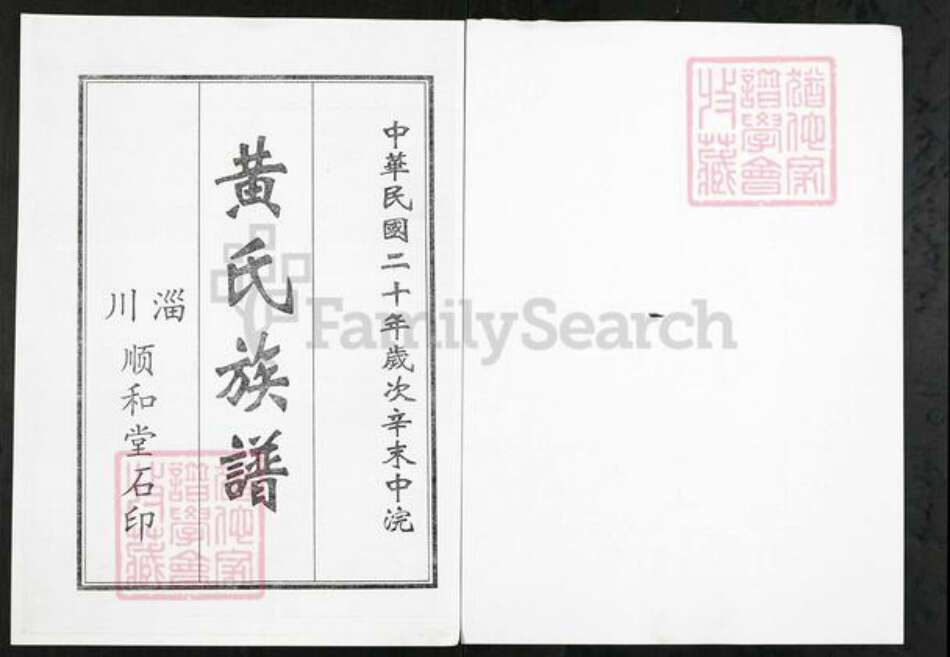 中華民國二十年歲次辛末中浣
黄氏族譜
淄川
顺和堂石印
猶他家
譜學會
收藏
猶他家
譜學會
收藏
FamilySearch